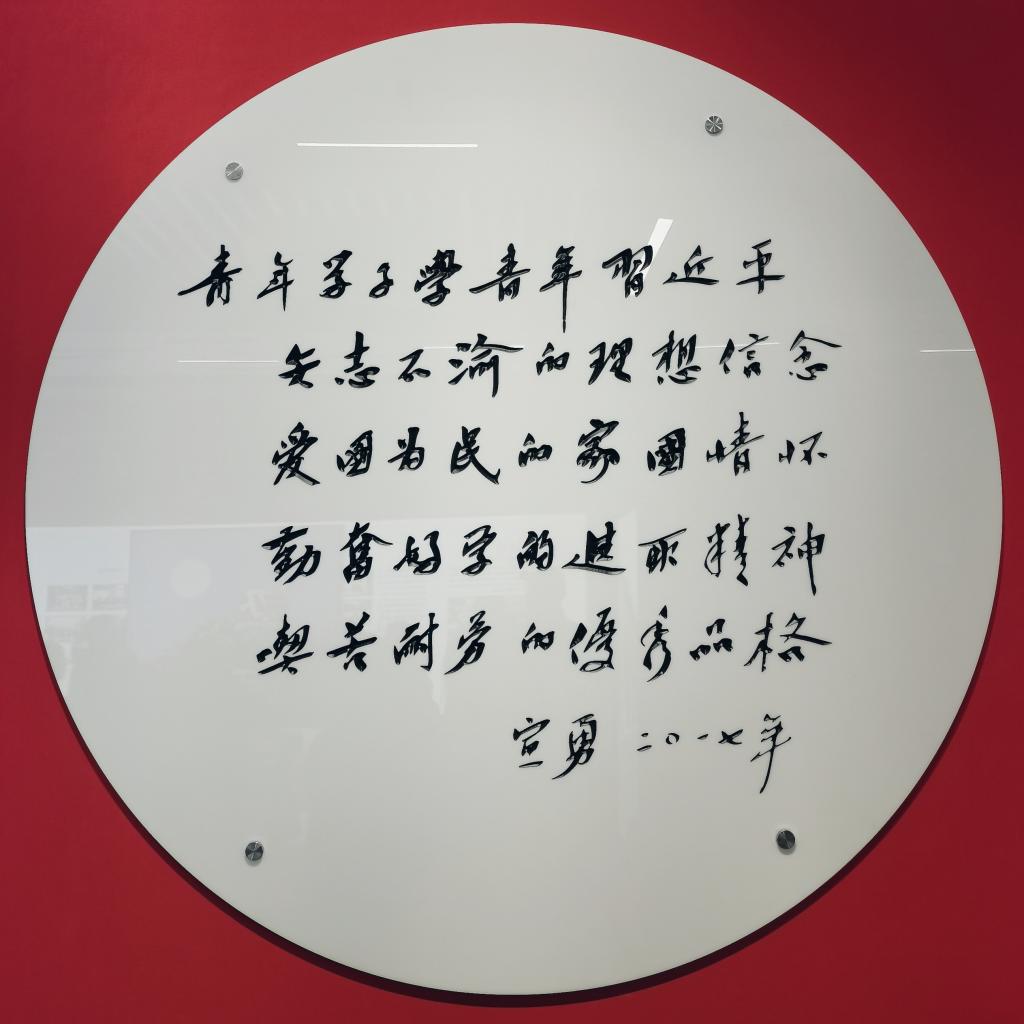 青年学子學青年習近平
矢志不渝的理想信念
爱國为民的家國情怀
勤奮好学的進取精神
喫苦耐劳的優秀品格
宣勇 二〇一七年